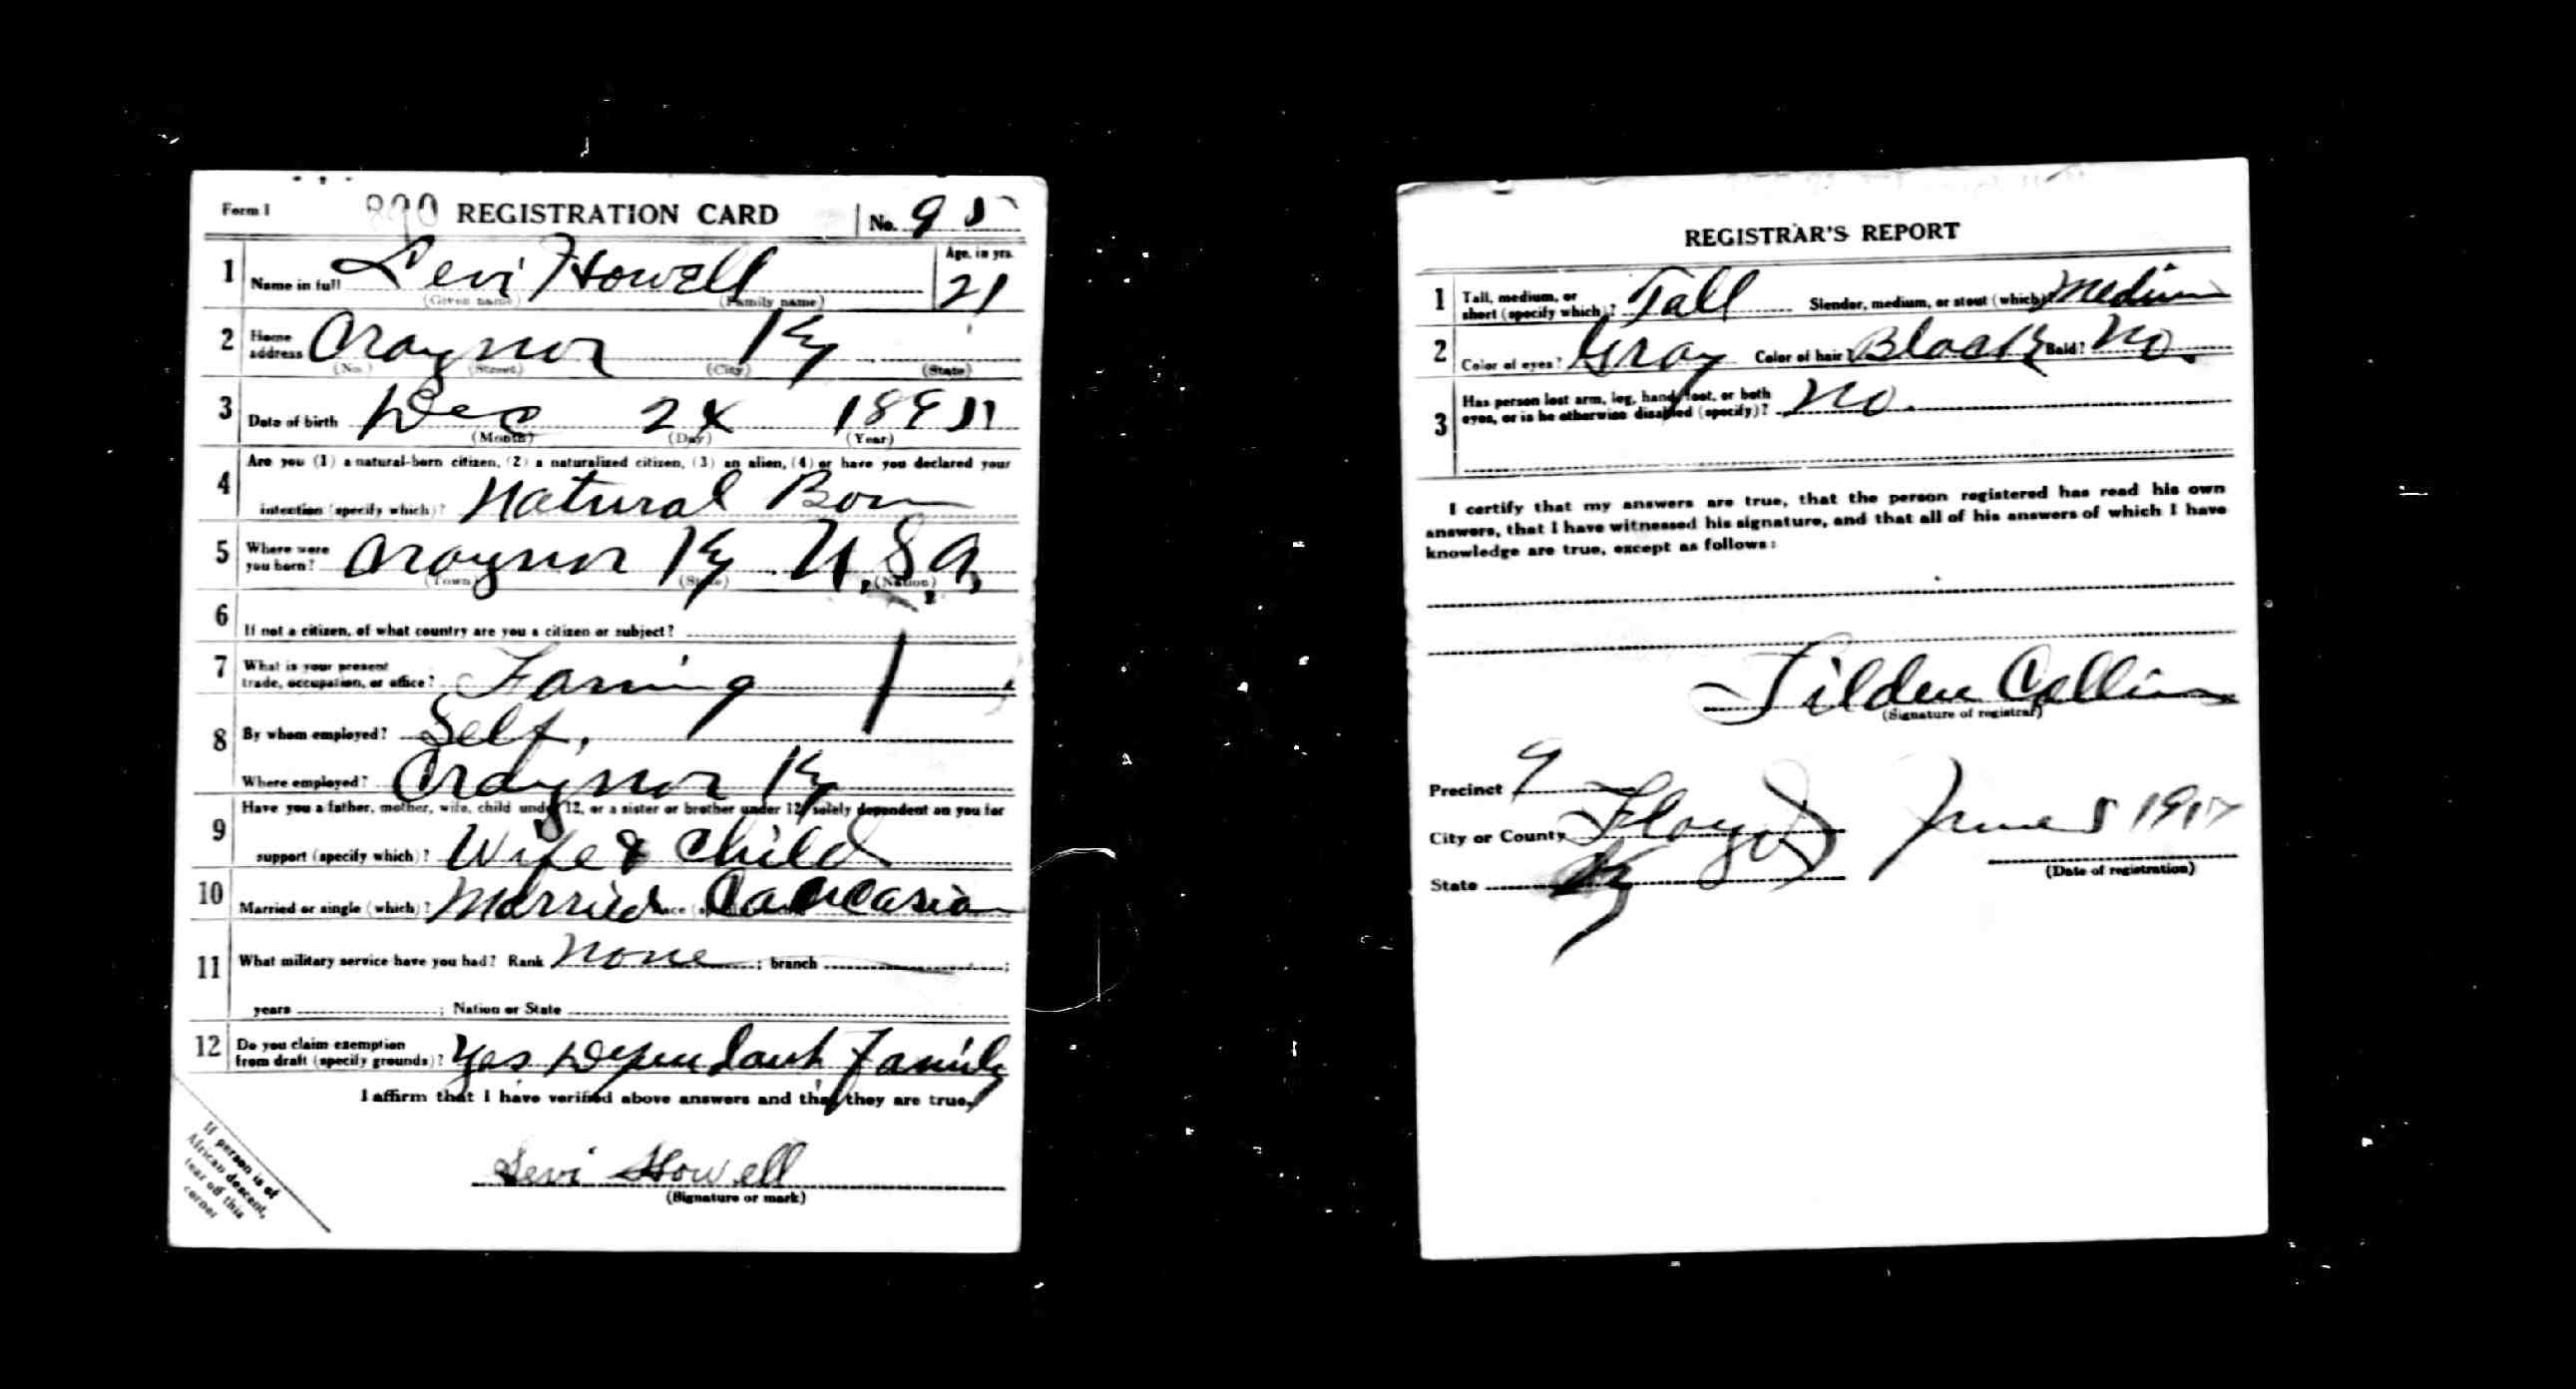 Form 1 890 REGISTRATION CARD No. 95
1 Name in full Levi Howell Age, in yrs. 21
(Given name) (Family name)
2 Home address Craynor Ky
(No.) (Street) (City) (State)
3 Date of birth Dec 24 1895
(Month) (Day) (Year)
4 Are you (1) a natural-born citizen, (2) a naturalized citizen, (3) an alien, (4) or have you declared your
intention (specify which)? Natural Born
5 Where were you born? Craynor Ky U.S.a.
(Town) (State) (Nation)
6 If not a citizen, of what country are you a citizen or subject?
7 What is your present
trade, occupation, or office? Faming
8 By whom employed? Self,
Where employed? Craynor Ky
9 Have you a father, mother, wife, child under 12, or a sister or brother under 12, solely dependent on you for
support (specify which)? Wife & Child
10 Married or single (which)? Married Race Caucasian
11 What military service have you had? Rank none ; branch ;
years ; Nation or State
12 Do you claim exemption
from draft (specify grounds)? Yes Dependant Family
I affirm that I have verified above answers and that they are true.
Levi Howell
(Signature or mark)
If person is of
African descent,
tear off this
corner
REGISTRAR'S REPORT
1 Tall, medium, or
short (specify which)? Tall Slender, medium, or stout (which)? Medium
2 Color of eyes? Gray Color of hair? Black Bald? No.
3 Has person lost arm, leg, hand, foot, or both
eyes, or is he otherwise disabled (specify)? No.
I certify that my answers are true, that the person registered has read his own
answers, that I have witnessed his signature, and that all of his answers of which I have
knowledge are true, except as follows:
Tilden Collins
(Signature of registrar)
Precinct 9
City or County Floyd June 5 1917
State Ky (Date of registration)